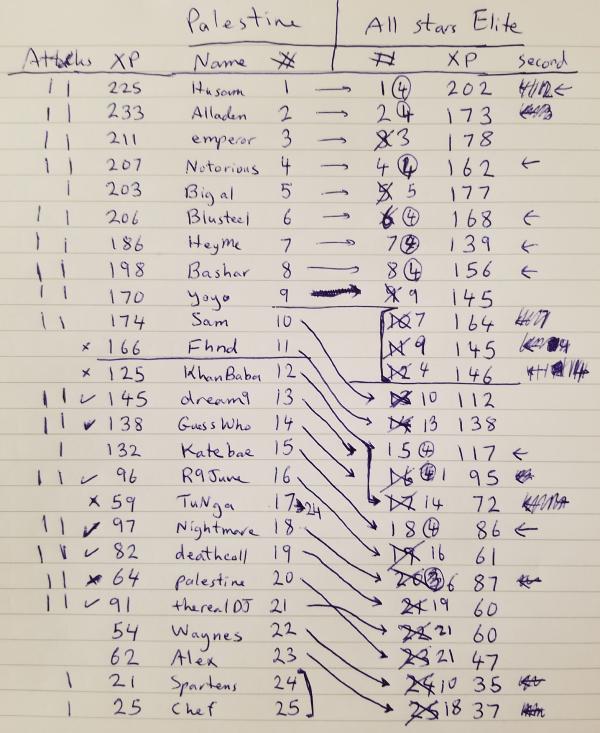 Palestine All stars Elite
Attcks XP Name # # XP second
| | 225 Husam 1 → 1 ④ 202 ←
| | 233 Alladen 2 → 2 ④ 173
| | 211 emperor 3 → 3 178
| | 207 Notorious 4 → 4 ④ 162 ←
| 203 Big al 5 → 5 177
| | 206 Blusteel 6 → 6 ④ 168 ←
| | 186 HeyMe 7 → 7 ④ 139 ←
| | 198 Bashar 8 → 8 ④ 156 ←
| | 170 yoyo 9 → 9 145
| | 174 Sam 10 10 7 164
x 166 Fhnd 11 11 9 145
x 125 KhanBaba 12 12 4 146
| | ✓ 145 dream9 13 10 112
| | ✓ 138 GuessWho 14 13 138
| 132 Katebae 15 15 ④ 117 ←
| | ✓ 96 R9June 16 16 ④ 1 95
x 59 TuNga 17 → 24 17 14 72
| | ✓ 97 Nightmare 18 18 ④ 86 ←
| | ✓ 82 deathcall 19 19 16 61
| | x 64 palestine 20 20 ③ 6 87
| | ✓ 91 therealDJ 21 21 19 60
54 Waynes 22 22 21 60
62 Alex 23 23 21 47
| 21 Spartens 24 24 10 35
| 25 Chef 25 25 18 37